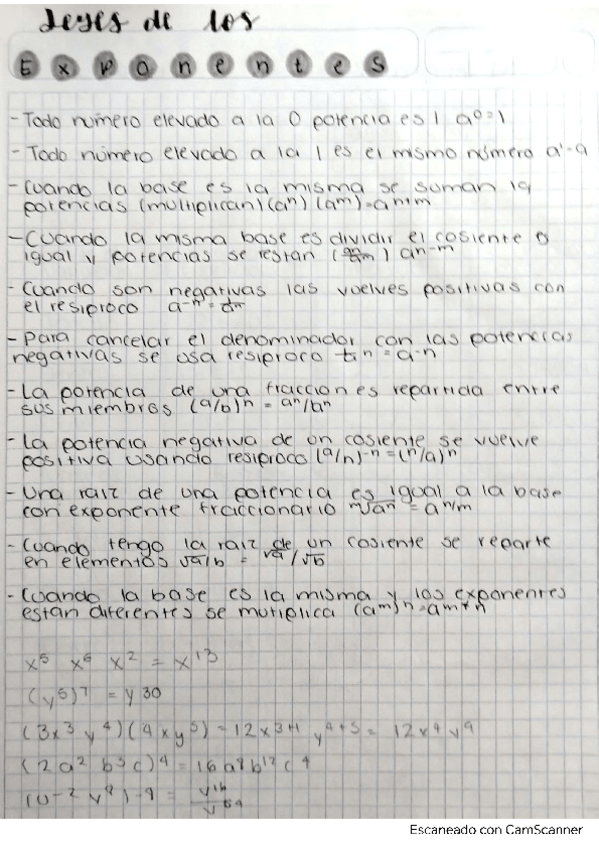 Leyes de los
Exponentes
- Todo número elevado a la 0 potencia es 1 a⁰=1
- Todo número elevado a la 1 es el mismo número a¹=a
- Cuando la base es la misma se suman la
potencias (multiplican) (aⁿ) (aᵐ)=aⁿ⁺ᵐ
- Cuando la misma base es dividir el cosiente es
igual y potencias se restan (aⁿ/aᵐ) aⁿ⁻ᵐ
- Cuando son negativas las vuelves positivas con
el resiproco a⁻ⁿ=
- Para cancelar el denominador con las potencias
negativas se usa resiproco = a⁻ⁿ
- La potencia de una fraccion es repartida entre
sus miembros (a/b)ⁿ = aⁿ/bⁿ
- La potencia negativa de un cosiente se vuelve
positiva usando resiproco (a/n)⁻ⁿ=(n/a)ⁿ
- Una raiz de una potencia es igual a la base
con exponente fraccionario ᵐ√aⁿ = aⁿ/ᵐ
- Cuando tengo la raiz de un cosiente se reparte
en elementos √a/b = √a/√b
- Cuando la base es la misma y los exponentes
estan diferentes se mutiplica (aᵐ)ⁿ=aᵐ*ⁿ
x⁵ x⁶ x² = x¹³
= y 30
(3x³ y⁴)(4xy⁵) = 12x³⁺¹ y⁴⁺⁵ = 12x⁴y⁹
(2a² b³c)⁴ = 16a⁸b¹²c⁴
Escaneado con CamScanner